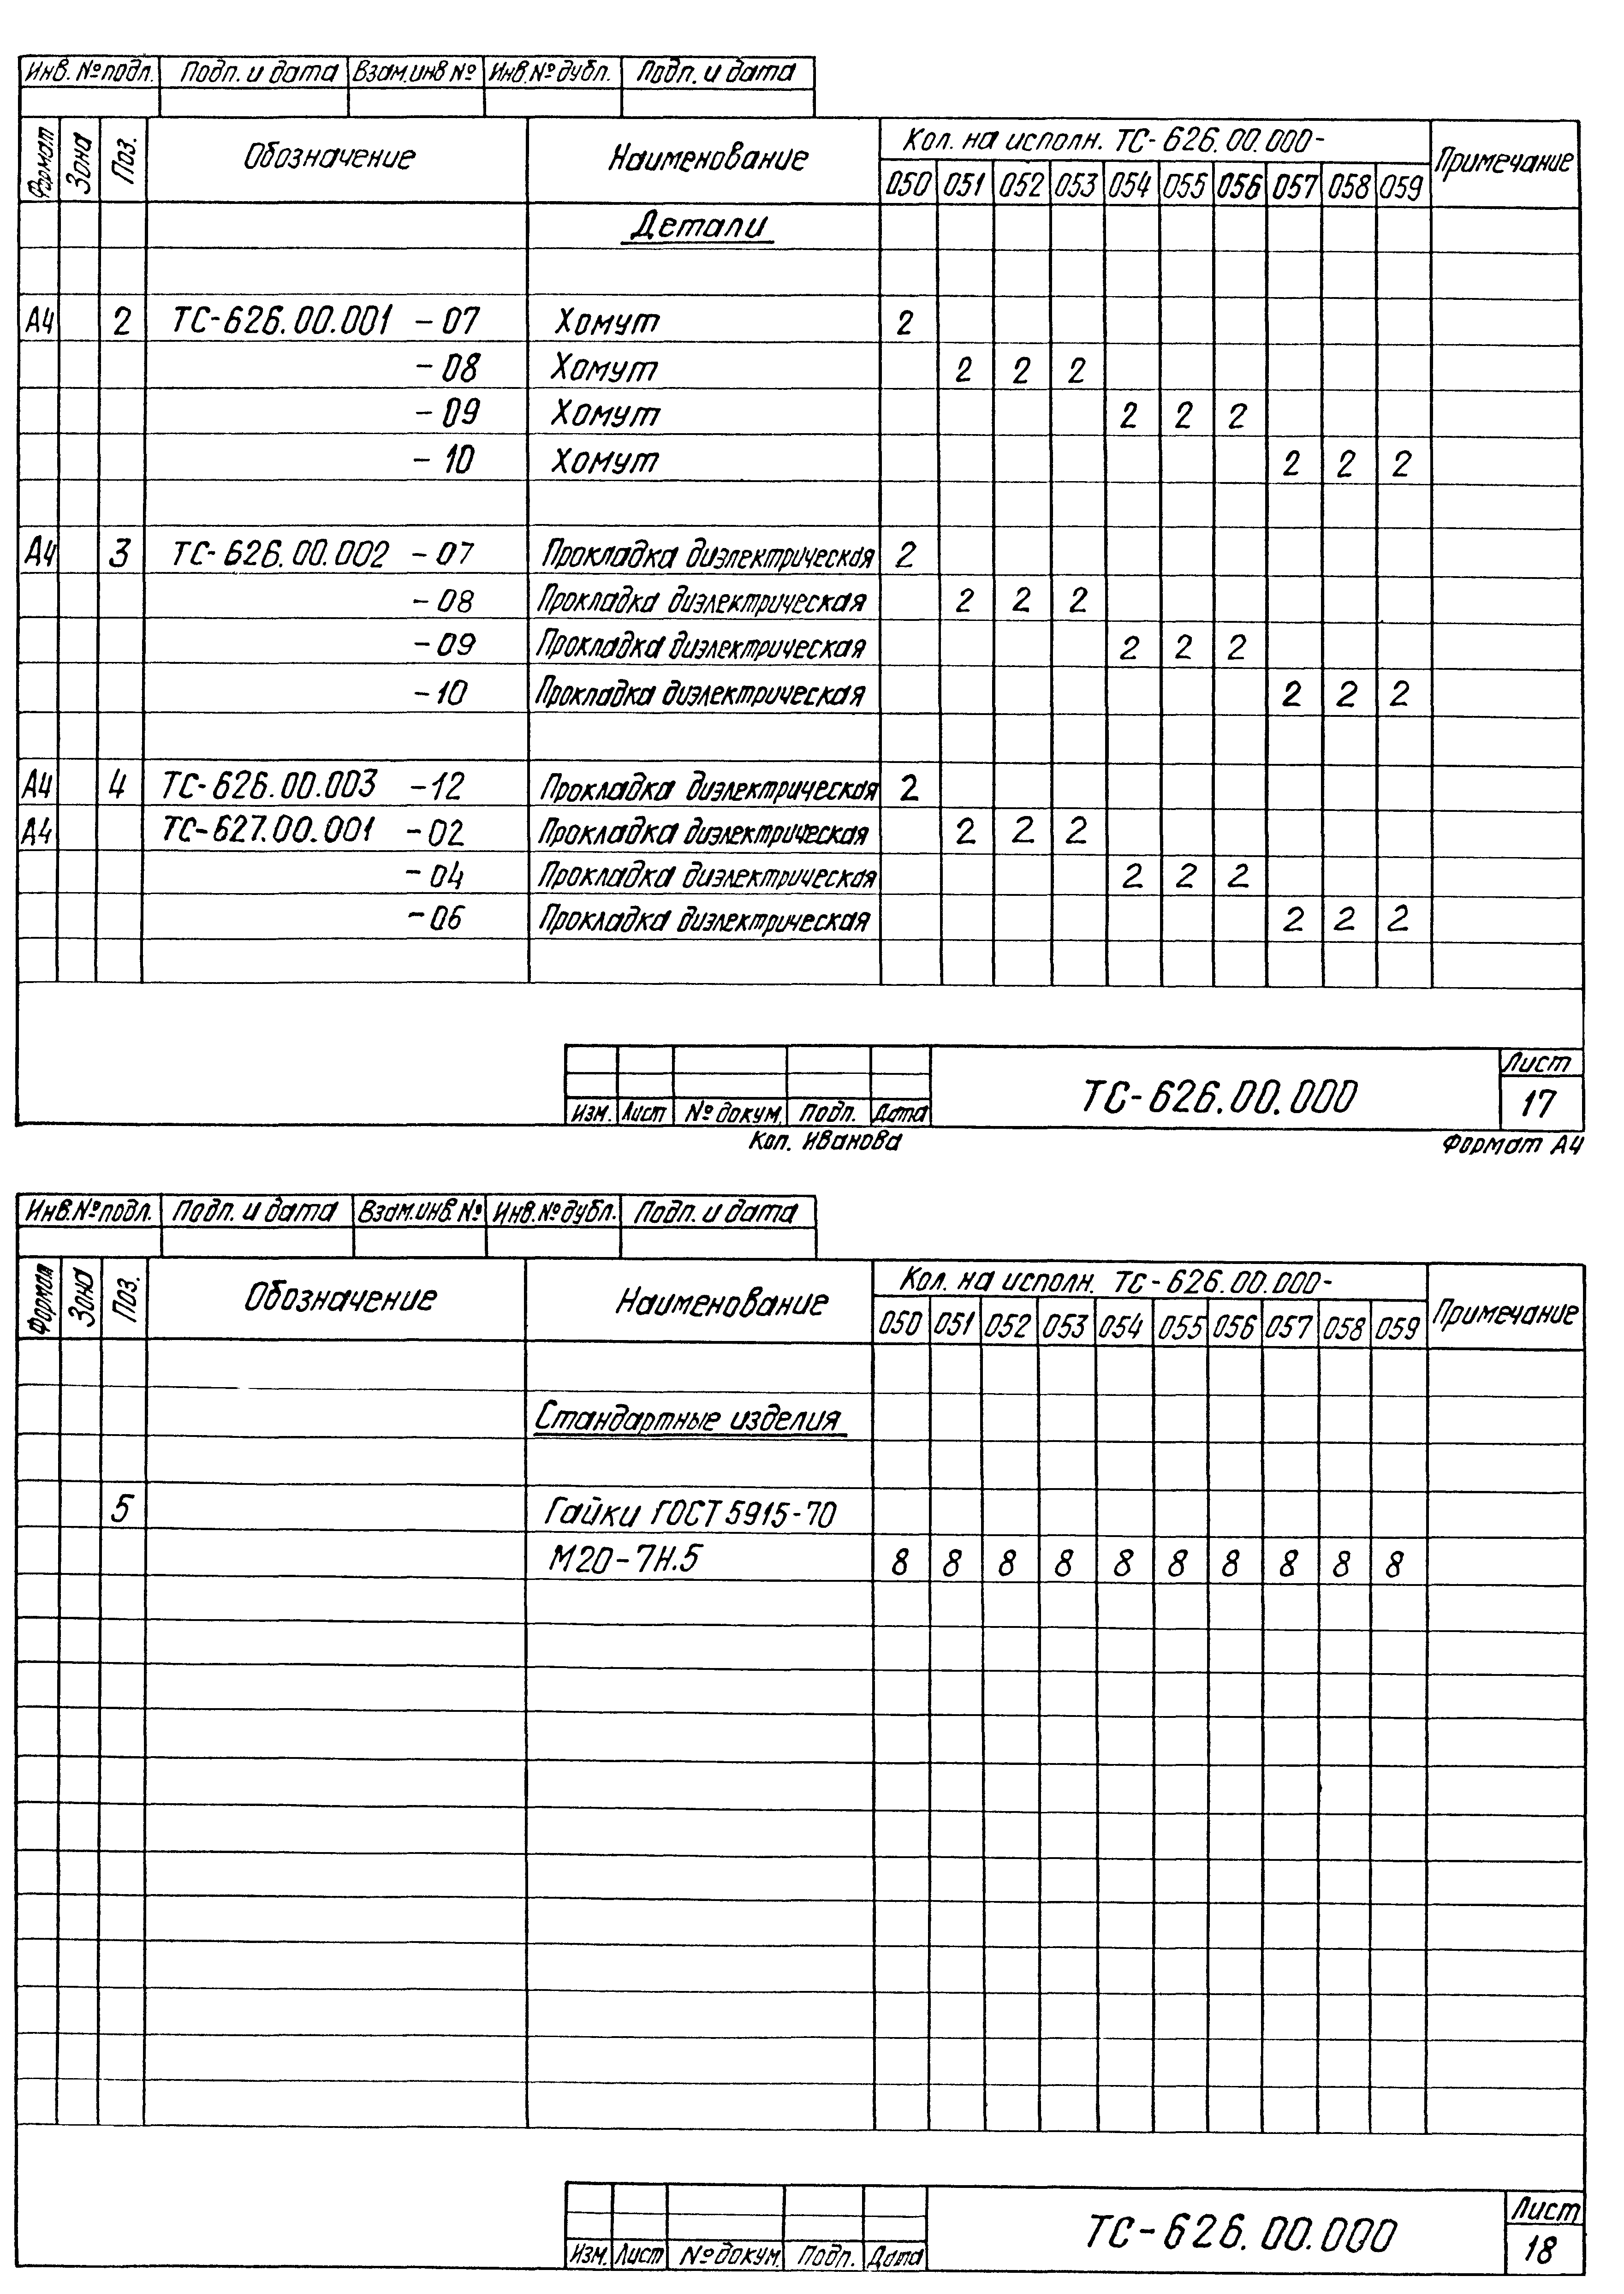 Инв. № подл. Подп. и дата Взам.инв № Инв.№ дубл. Подп. и дата
Формат Зона Поз. Обозначение Наименование Кол. на исполн. ТС-626.00.000- Примечание
050 051 052 053 054 055 056 057 058 059
Детали
А4 2 ТС-626.00.001 -07 Хомут 2
-08 Хомут 2 2 2
-09 Хомут 2 2 2
-10 Хомут 2 2 2
А4 3 ТС-626.00.002 -07 Прокладка диэлектрическая 2
-08 Прокладка диэлектрическая 2 2 2
-09 Прокладка диэлектрическая 2 2 2
-10 Прокладка диэлектрическая 2 2 2
А4 4 ТС-626.00.003 -12 Прокладка диэлектрическая 2
А4 ТС-627.00.001 -02 Прокладка диэлектрическая 2 2 2
-04 Прокладка диэлектрическая 2 2 2
-06 Прокладка диэлектрическая 2 2 2
Лист
ТС-626.00.000 17
Изм. Лист № докум. Подп. Дата
Коп. Иванова Формат А4
Инв.№ подл. Подп. и дата Взам.инв. № Инв.№ дубл. Подп. и дата
Формат Зона Поз. Обозначение Наименование Кол. на исполн. ТС-626.00.000- Примечание
050 051 052 053 054 055 056 057 058 059
Стандартные изделия
5 Гайки ГОСТ 5915-70
М20-7Н.5 8 8 8 8 8 8 8 8 8 8
Лист
ТС-626.00.000 18
Изм. Лист № докум. Подп. Дата